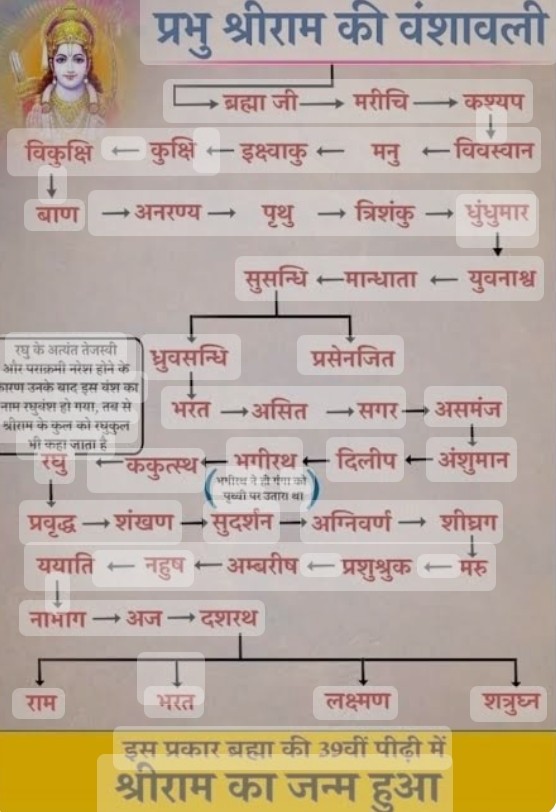 प्रभु श्रीराम की वंशावली
ब्रह्मा जी → मरीचि → कश्यप
विकुक्षि ← कुक्षि ← इक्ष्वाकु ← मनु ← विवस्वान
बाण → अनरण्य → पृथु → त्रिशंकु → धुंधुमार
सुसन्धि ← मान्धाता ← युवनाश्व
ध्रुवसन्धि प्रसेनजित
रघु के अत्यंत तेजस्वी
और पराक्रमी नरेश होने के
कारण उनके बाद इस वंश का
नाम रघुवंश हो गया, तब से
श्रीराम के कुल को रघुकुल
भी कहा जाता है
भरत → असित → सगर → असमंज
रघु ← ककुत्स्थ ← भगीरथ ← दिलीप ← अंशुमान
(भगीरथ ने ही गंगा को
पृथ्वी पर उतारा था)
प्रवृद्ध → शंखण → सुदर्शन → अग्निवर्ण → शीघ्रग
ययाति ← नहुष ← अम्बरीष ← प्रशुश्रुक ← मरु
नाभाग → अज → दशरथ
राम भरत लक्ष्मण शत्रुघ्न
इस प्रकार ब्रह्मा की 39वीं पीढ़ी में
श्रीराम का जन्म हुआ